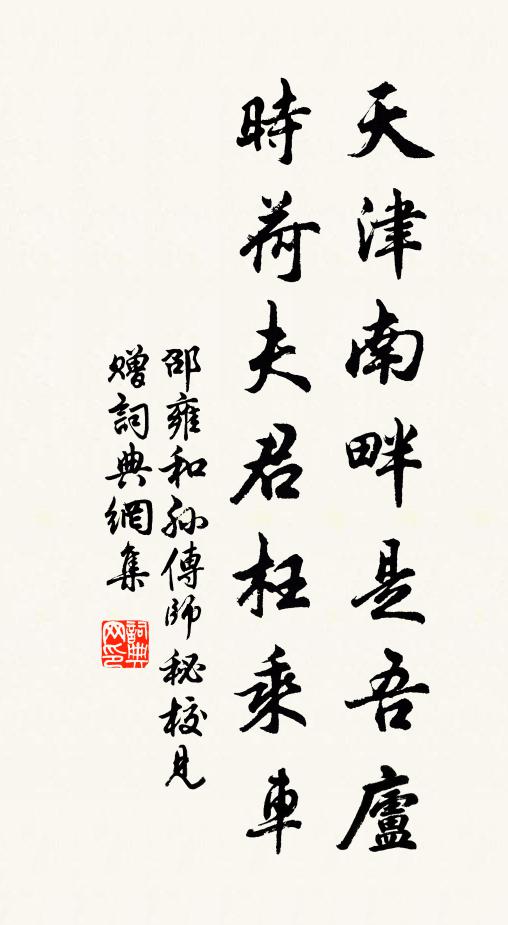 天津南畔是吾廬
時荷夫君枉乘車
邵雍和孫傳師秘校見
贈詞典網集
詞典
网印